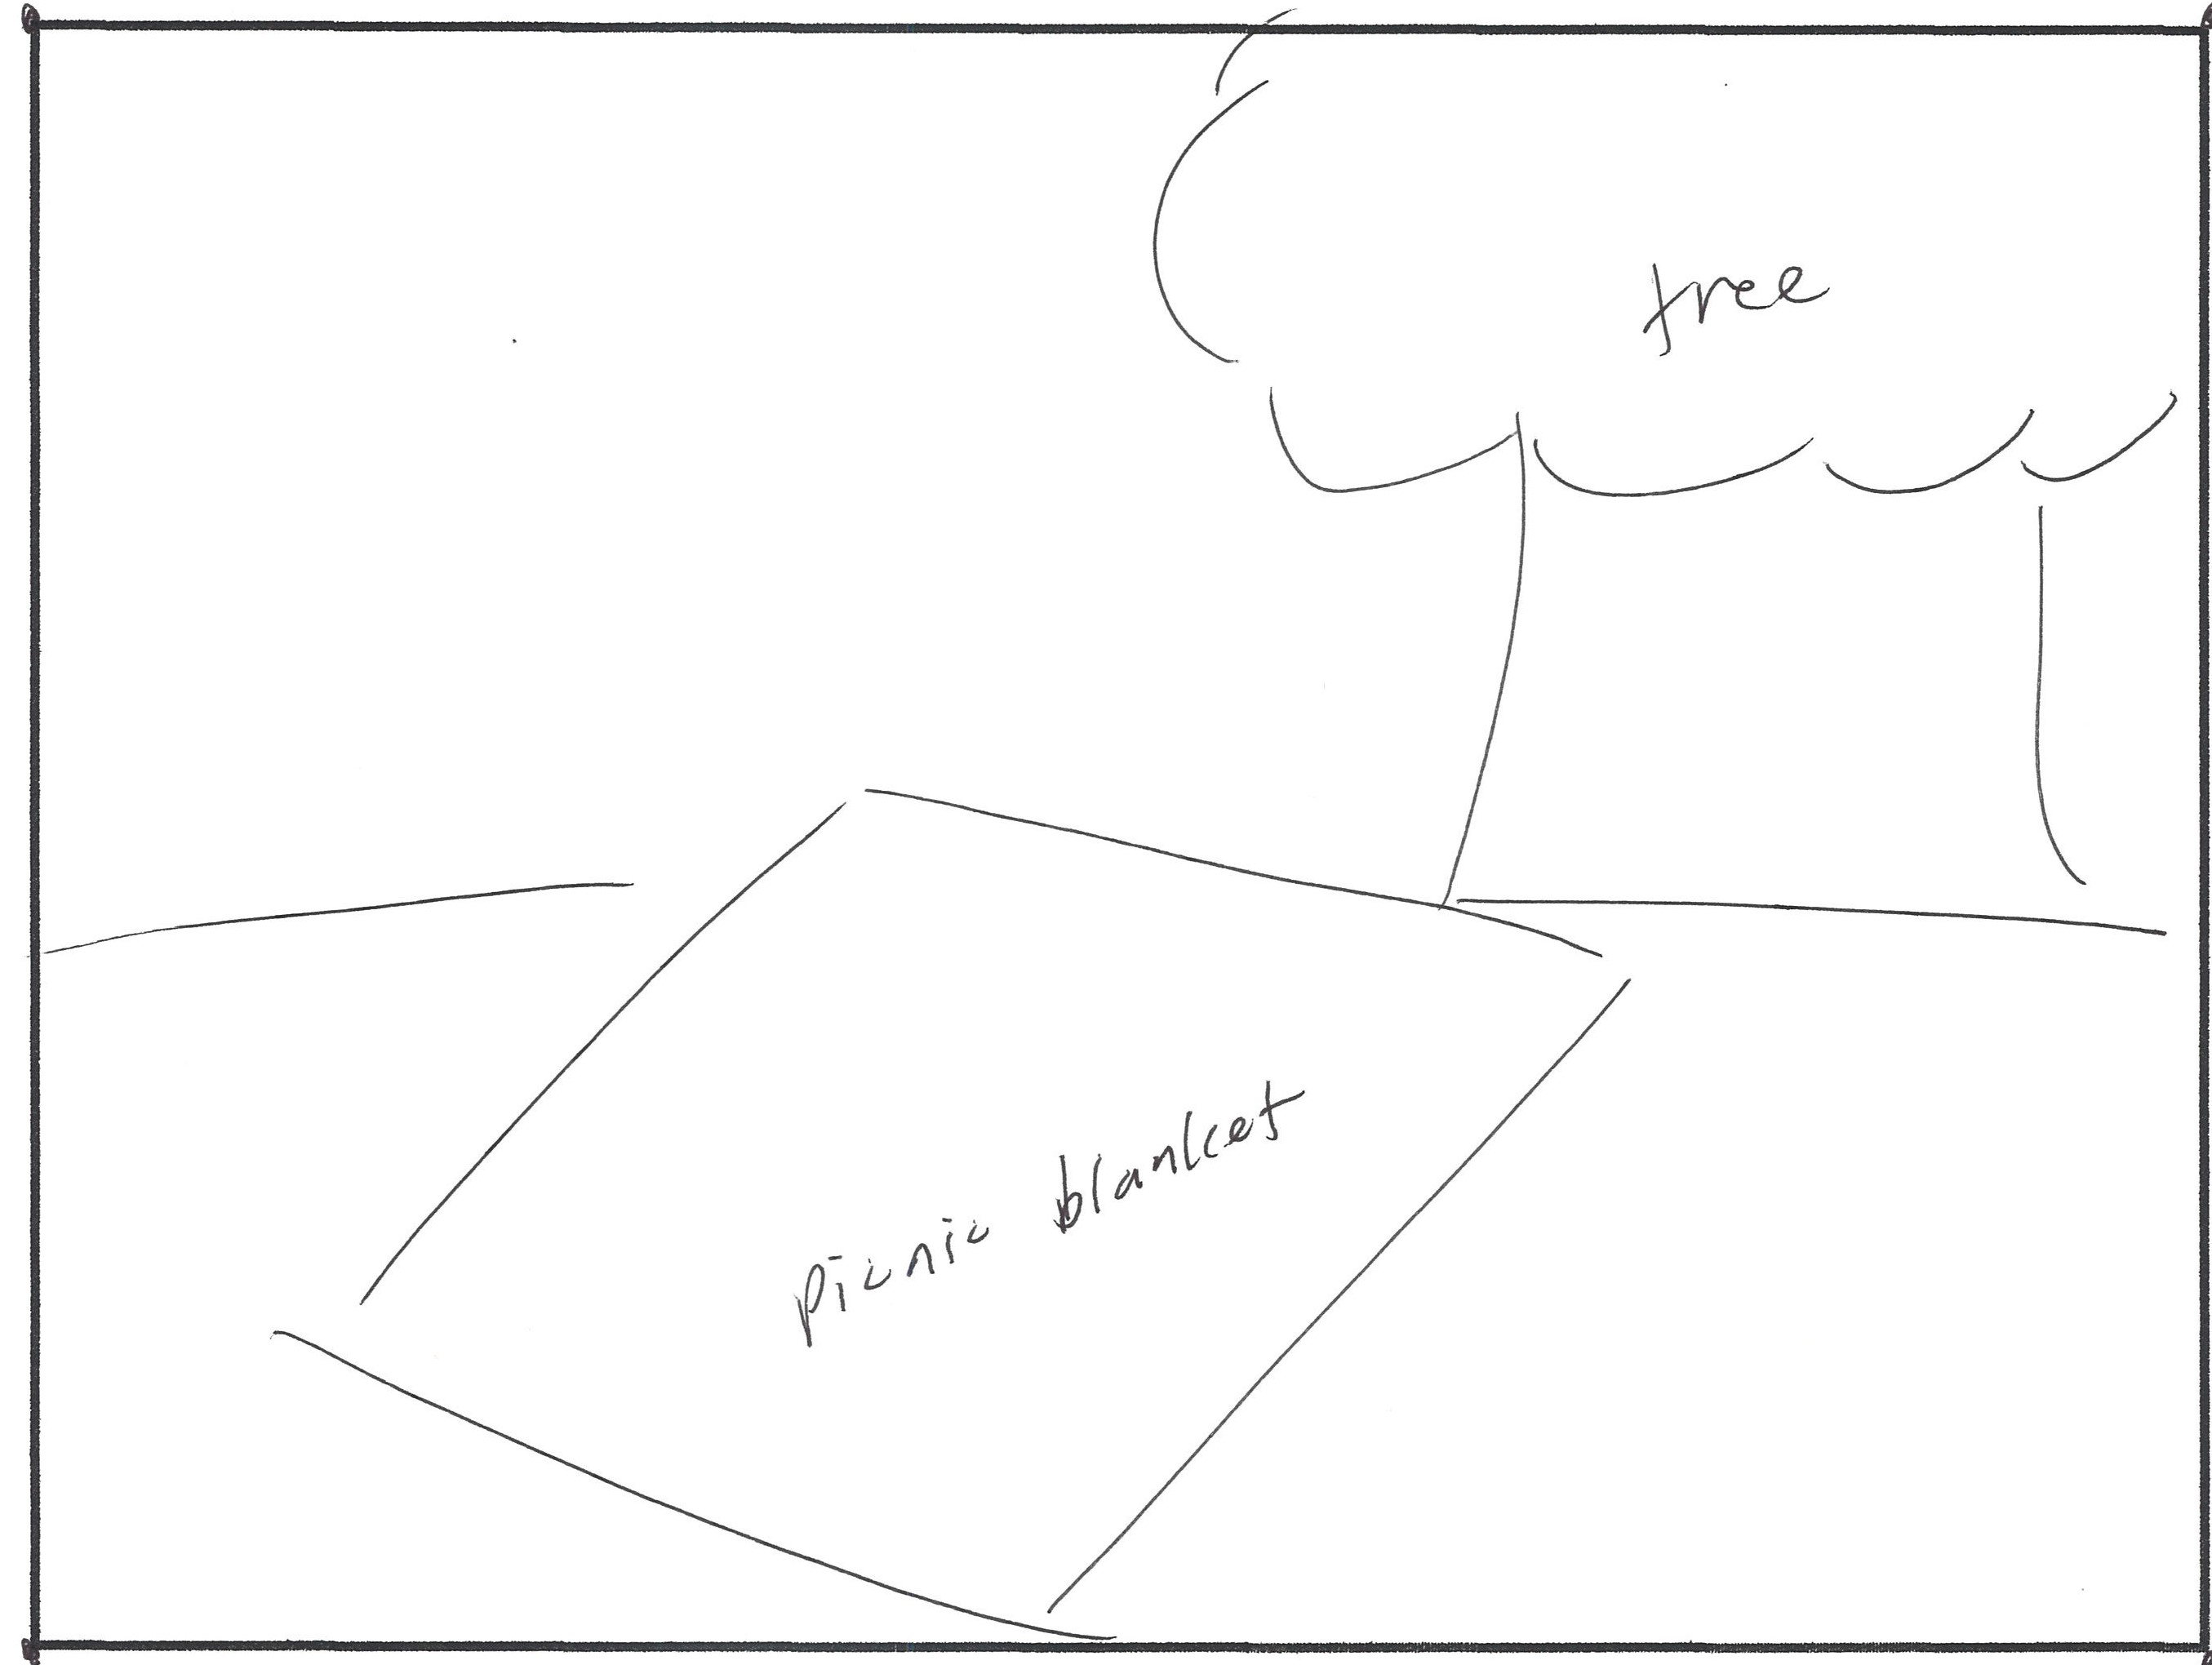 tree
picnic blanket